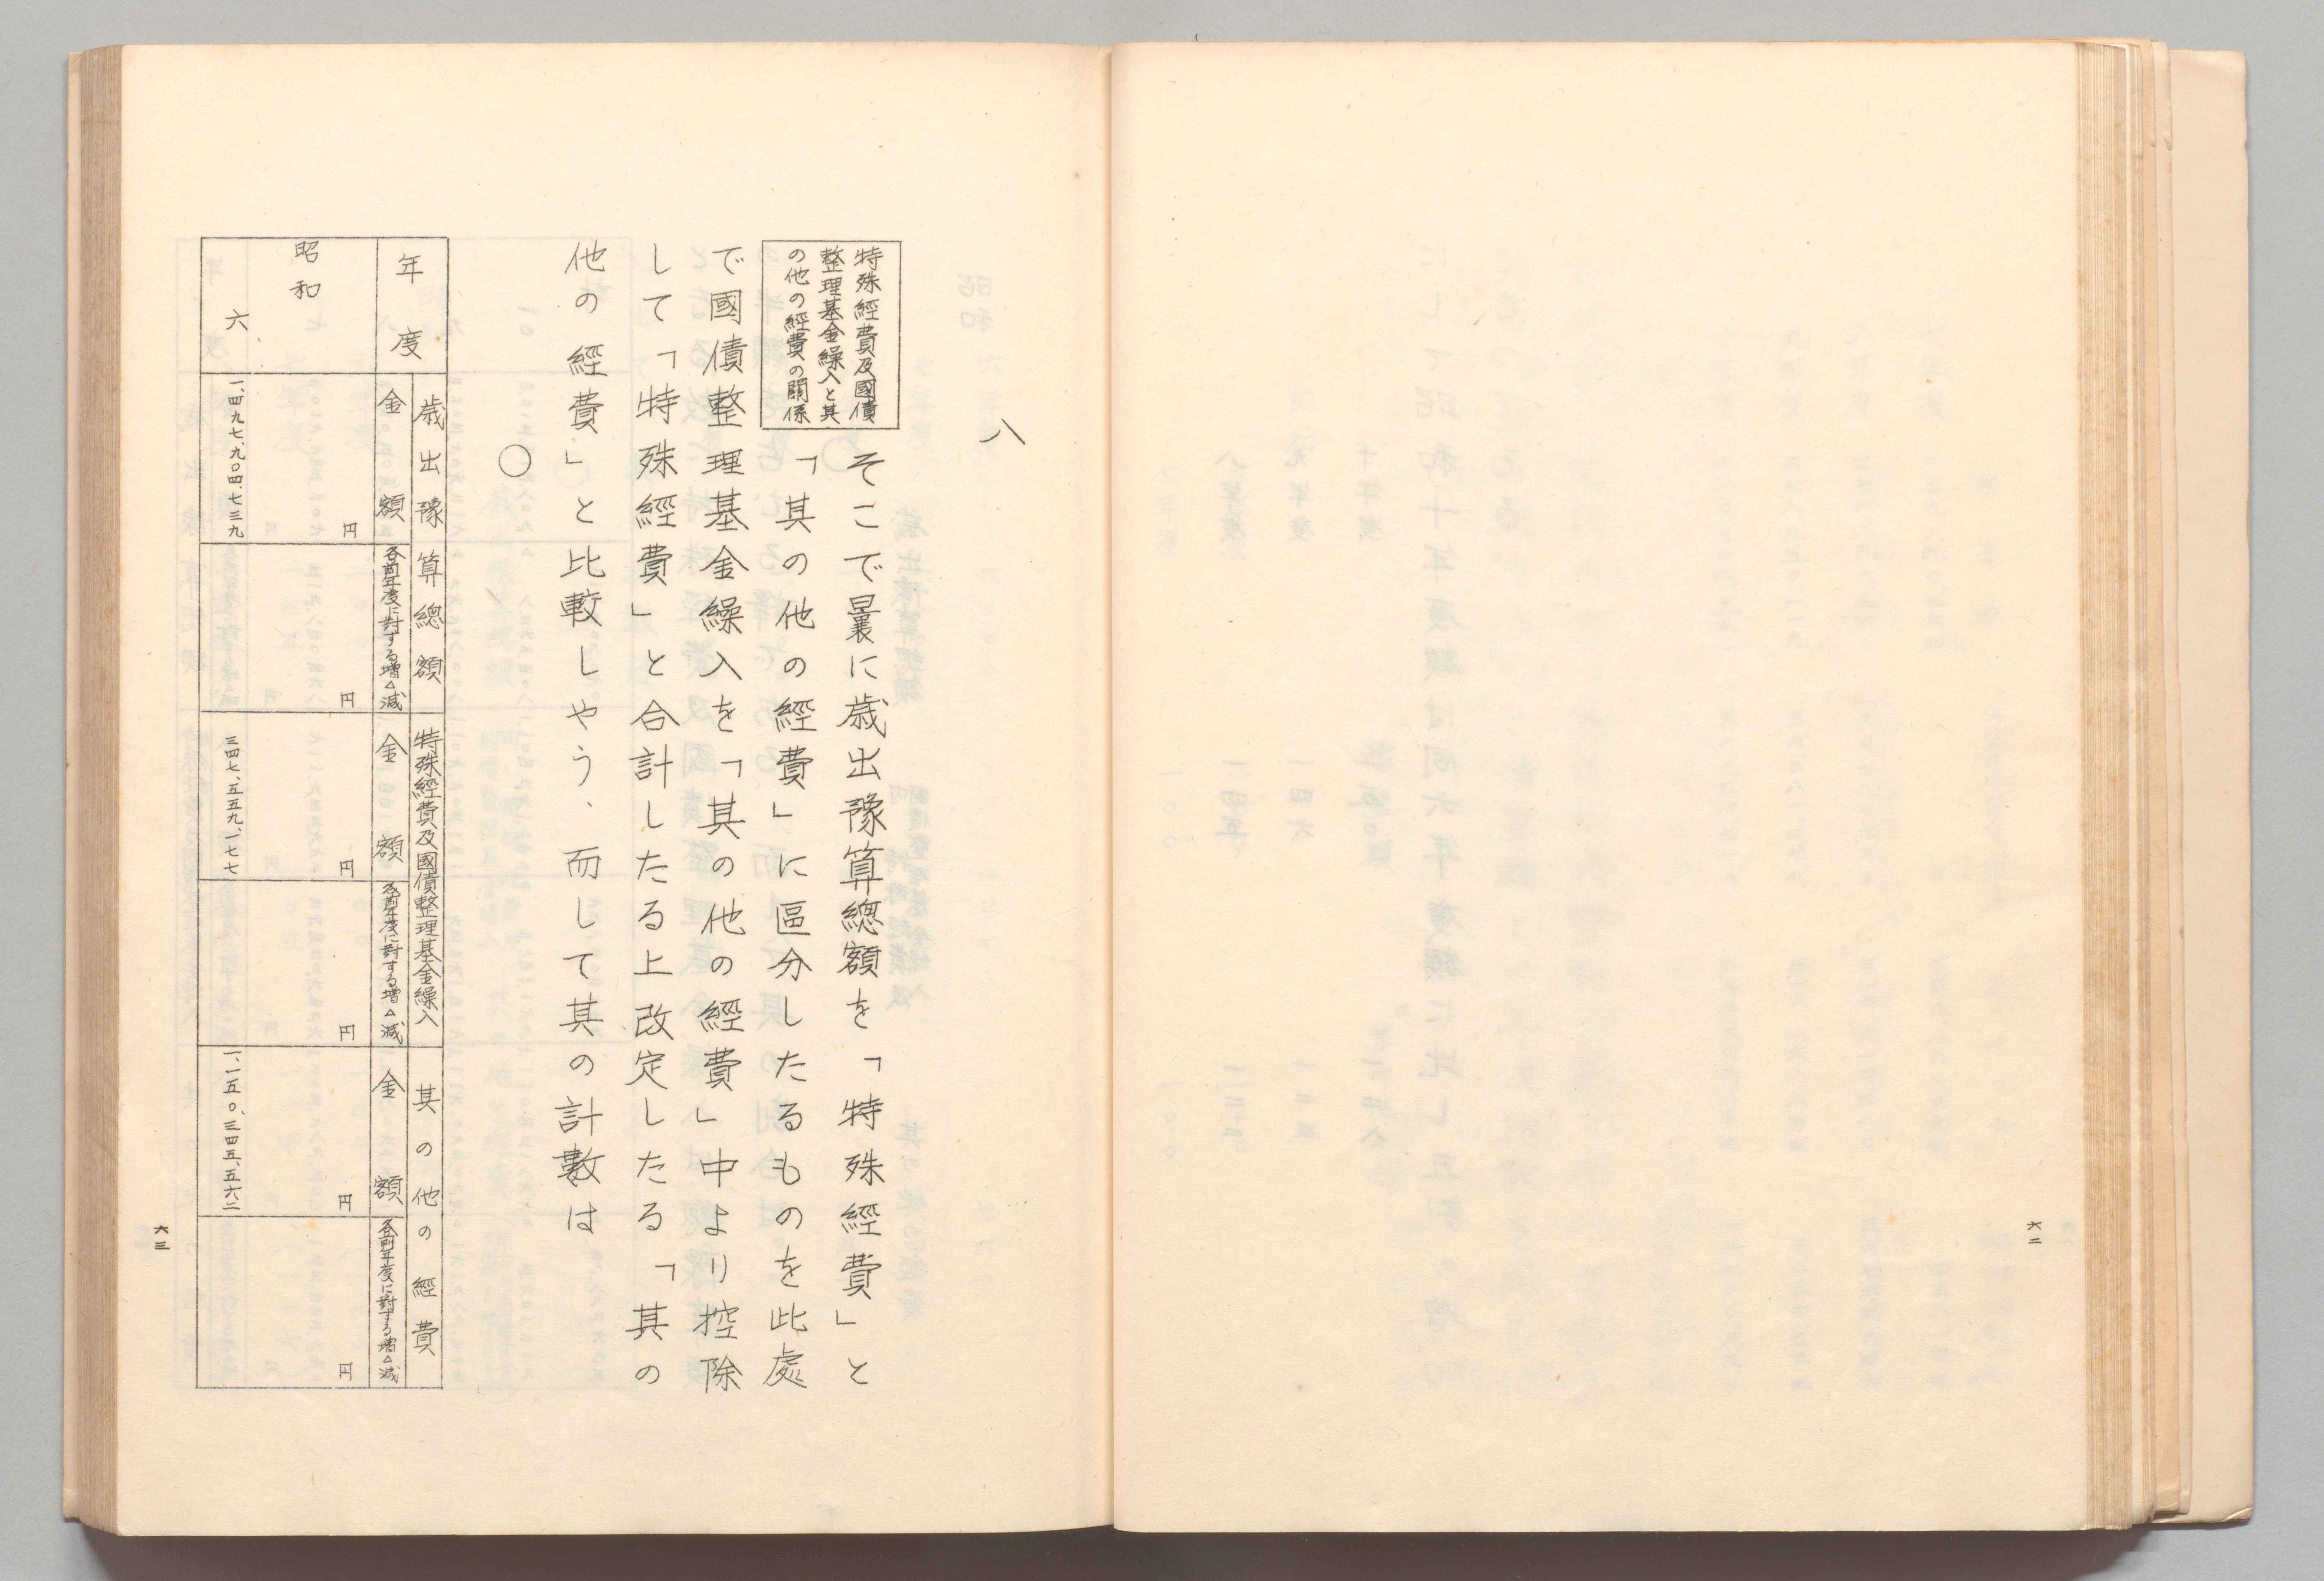 六二
八
特殊經費及國債
整理基金繰入と其
の他の經費の關係
そこで曩に歳出豫算總額を「特殊經費」と
「其の他の經費」に區分したるものを此處
で國債整理基金繰入を「其の他の經費」中より控除
して「特殊經費」と合計したる上改定したる「其の
他の經費」と比較しやう、而して其の計數は
〇
年度
歳出豫算總額
特殊經費及國債整理基金繰入
其の他の經費
金額
各前年度に對する增△減
金額
各前年度に對する增△減
金額
各前年度に對する增△減
昭和
円
円
円
円
円
円
六
一、四九七、九〇四、七三九
三四七、五五九、一七七
一、一五〇、三四五、五六二
六三